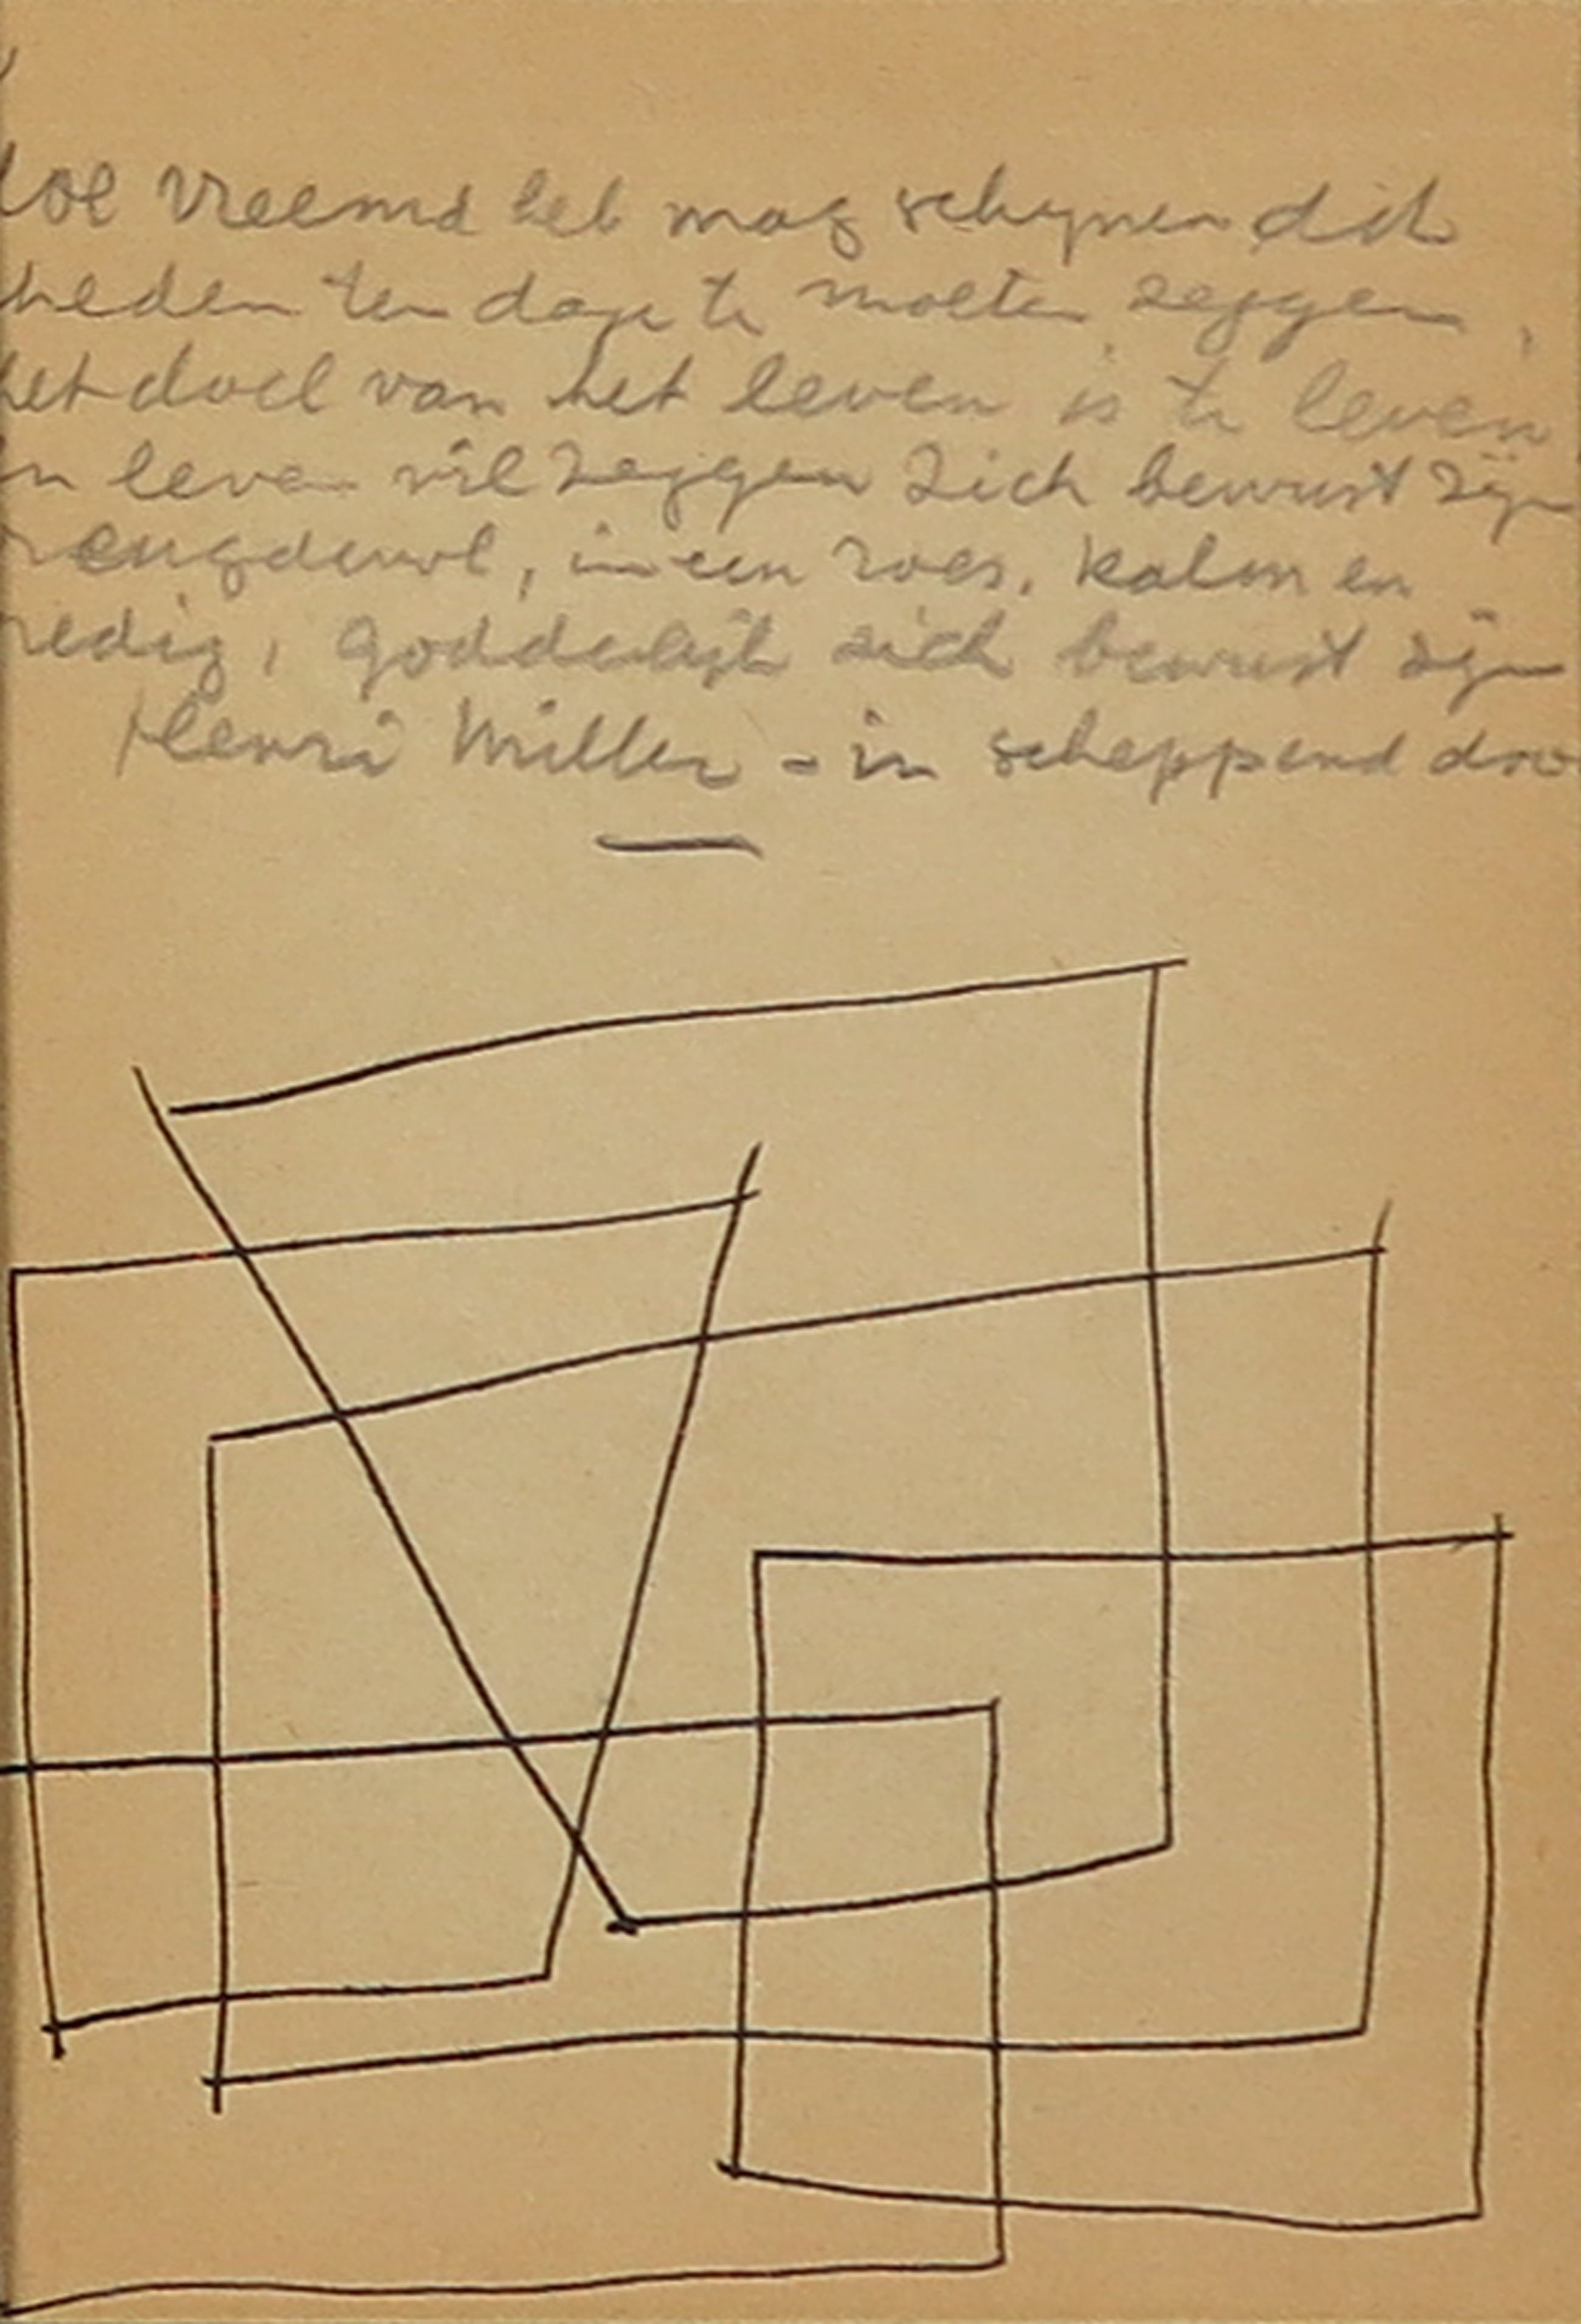 Hoe vreemd het mag schijnen dit
heden ten dage te moeten zeggen,
het doel van het leven is te leven,
en leven wil zeggen zich bewust zijn
vreugdevol, in een roes, kalm en
vredig, goddelijk zich bewust zijn
Henri Miller - in scheppend